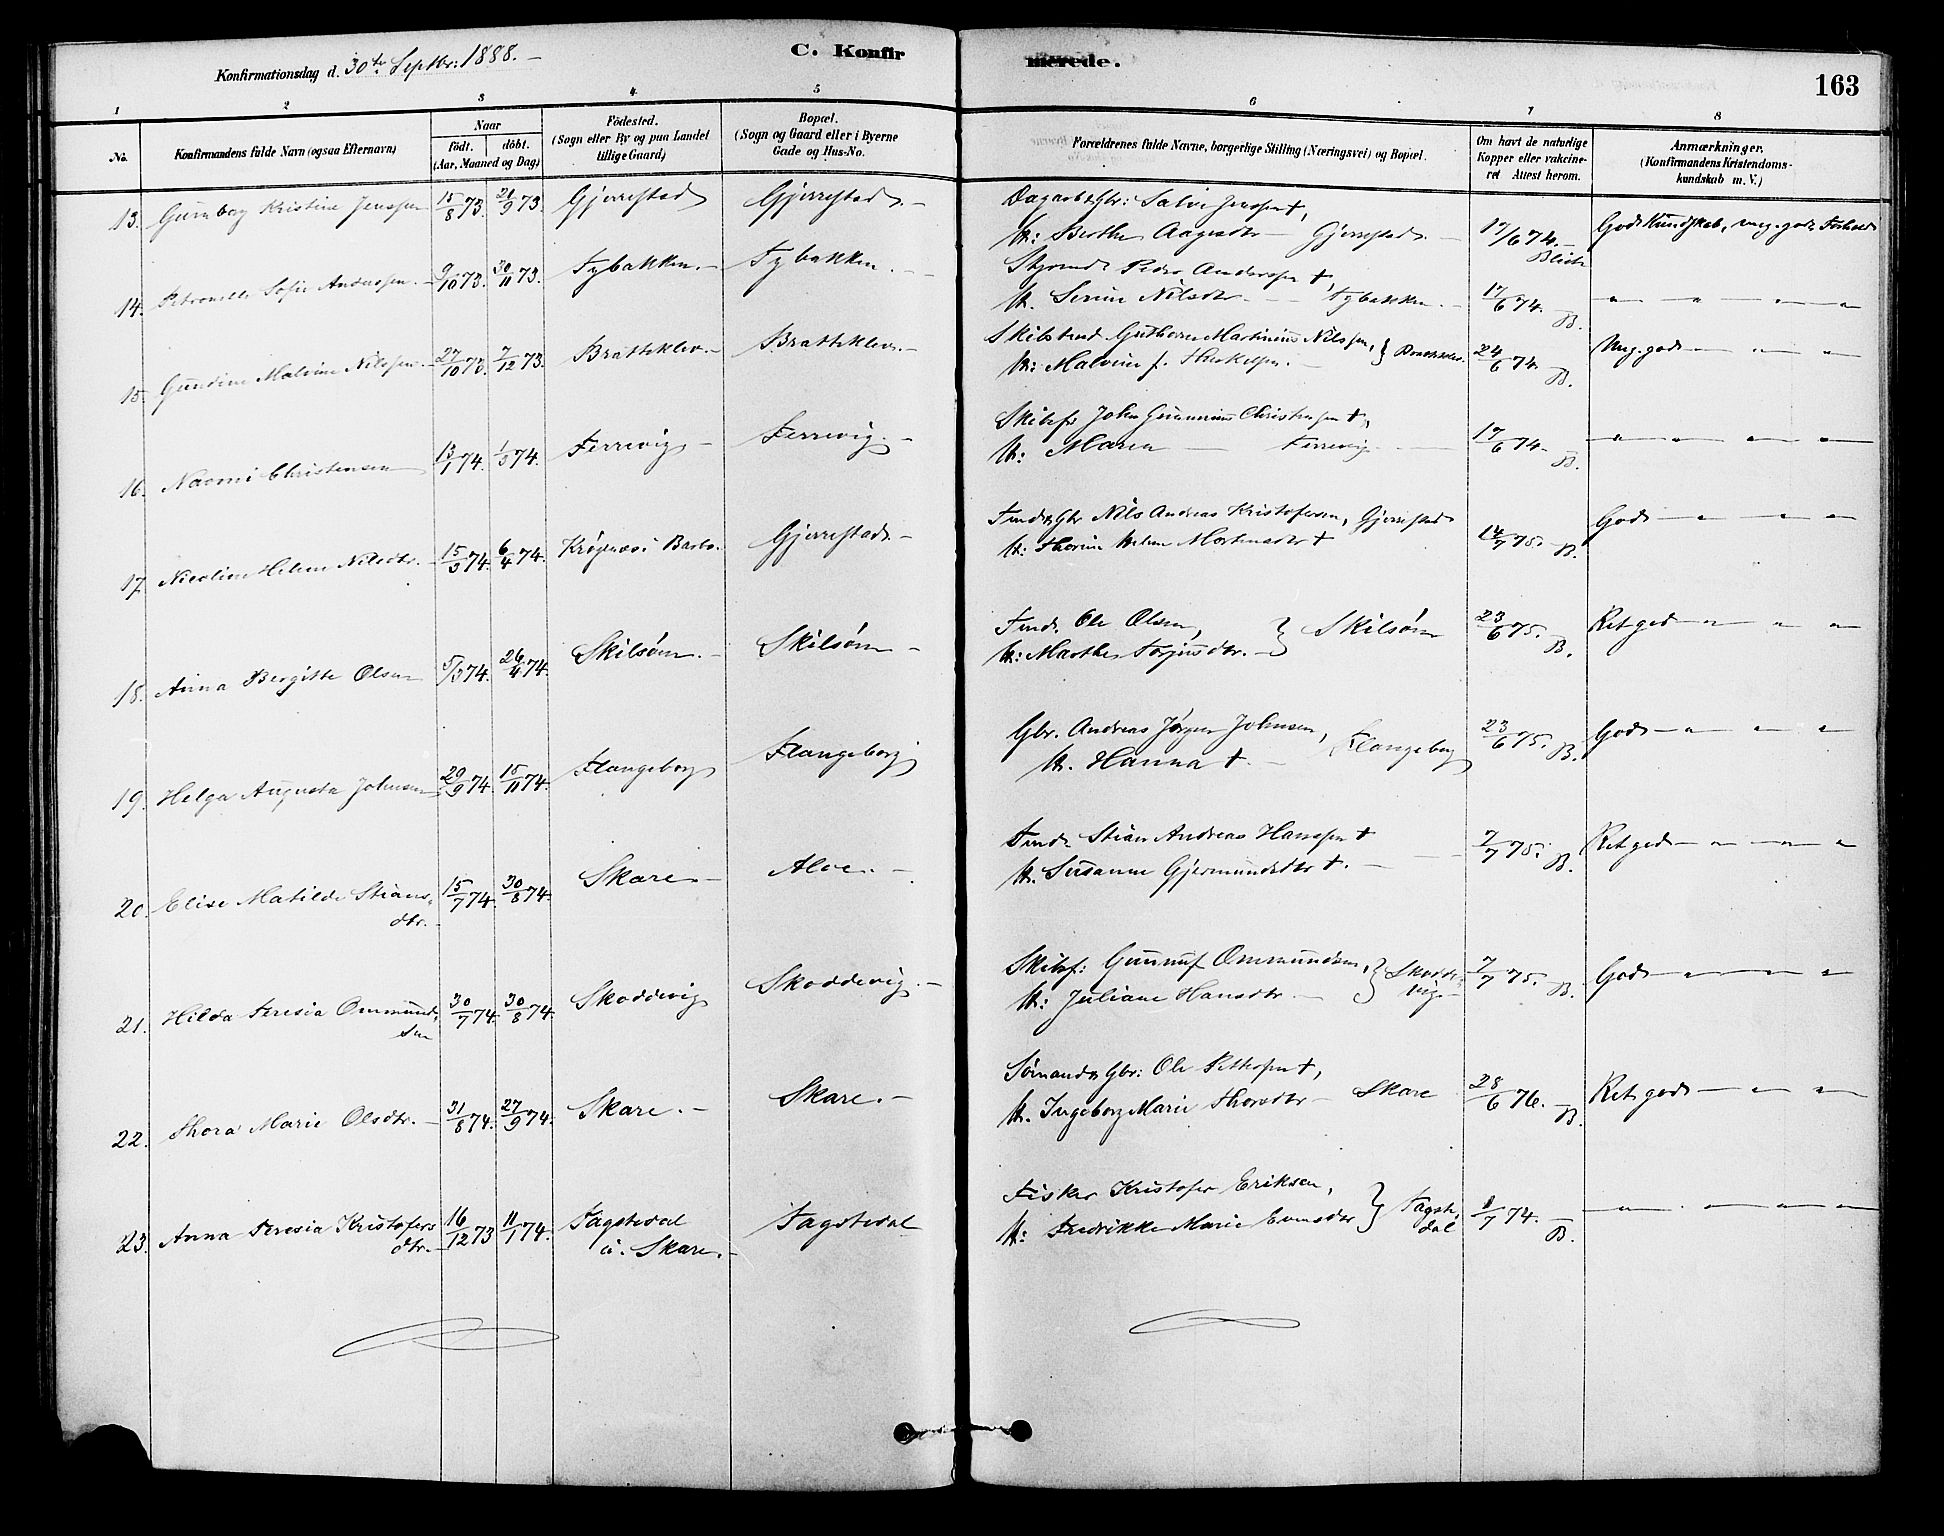 Konfirmationsdag d. 30te Septbr: 1888. –
C. Konfirmerede.
163
1 2 3 4 5 6 7 8
No. | Konfirmandens fulde Navn (ogsaa Efternavn) | Naar födt. döbt. (Aar, Maaned og Dag) | Födested. (Sogn eller By og paa Landet tillige Gaard) | Bopæl. (Sogn og Gaard eller i Byerne Gade og Hus-No. | Forældrenes fulde Navne, borgerlige Stilling (Næringsvei) og Bopæl. | Om havt de naturlige Kopper eller vakcineret Attest herom. | Anmærkninger. (Konfirmandens Kristendomskundskab m. V.)
13. Gunborg Kristine Jenssen 15/8 73. 21/9 73. Gjerrestad Gjerrestad. – Salve Jenssen †,
H: Berthe Aagesdtr – Gjerrestad. – 17/6 74. – Blich Godt Kundskab, meg. godt Forhold
14. Petronelle Sofie Anderssen. – 9/10 73. 30/11 73. Tybakken. – Tybakken. – Styrmd Peder Anderssen †,
H. Serine Nilsdtr. – Tybakken. – 17/6 74. – B. – " – " – " – "
15. Gundine Malvine Nilssen. – 27/10 73. 7/12 73. Bratteklev. – Bratteklev. – Skibstmd Guthorm Martinius Nilssen, }
H: Malvine f. Therkelsen. – 24/6 74. – B. Meg. godt – " – " – "
16. Naomi Christensen 13/1 74. 1/3 74. Ferrevig – Ferrevig. – Skibsfr John Gunnerius Christensen †,
H: Maren – Ferrevig. – 17/6 74. – B. – " – " – " – "
17. Nicoline Helene Nilsdtr. – 15/3 74. 6/4 74. Krøgenæs i Barbo. Gjerrestad. – Tmd & Gbr Nils Andreas Kristofersen, Gjerrestad
H: Thorine Helene Mortensdtr † 14/7 75. – B. Godt – " – " – "
18. Anna Bergitte Olsen 5/3 74. 26/4 74. Skilsøen. – Skilsøen – Tmd. Ole Olsen, }
H: Marthe Torjusdtr. – Skilsøen 23/6 75. – B. Ret god – " – " – "
19. Helga Augusta Johnsen 20/9 74. 15/11 74. Flangeborg Flangeborg Gbr. Andreas Jørgen Johnsen,
H. Hanna †. – Flangeborg 23/6 75. – B. Godt – " – " – "
20. Elise Matilde Stians-
dtr. – 15/7 74. 30/8 74. Skare – Alve. – Tmd. Stian Andreas Hanssen †
H. Susanne Gjermundsdtr †. – 7/7 75. – B. Ret god – " – " – "
21. Hilda Teresia Ommund-
sen 30/7 74. 30/8 74. Skoddevig Skoddevig. – Skibsf: Gunnuf Ommundsen, }
H: Juliane Hansdtr. – Skodde-
vig. – 7/7 75. – B. Godt – " – " – "
22. Thora Marie Olsdtr. – 31/8 74. 27/9 74. Skare. – Skare. – Sømand & Gbr: Ole Pettersen †,
H. Ingeborg Marie Thorsdtr – Skare 28/6 76. – B. Ret godt – " – "
23. Anna Teresia Kristofers
dtr. – 16/12 73 11/1 74. Fagstedal
u. Skare. – Fagstedal Fisker Kristofer Eriksen, }
H: Fredrikke Marie Evensdtr Fagste-
dal 1/7 74. – B. – " – " – "